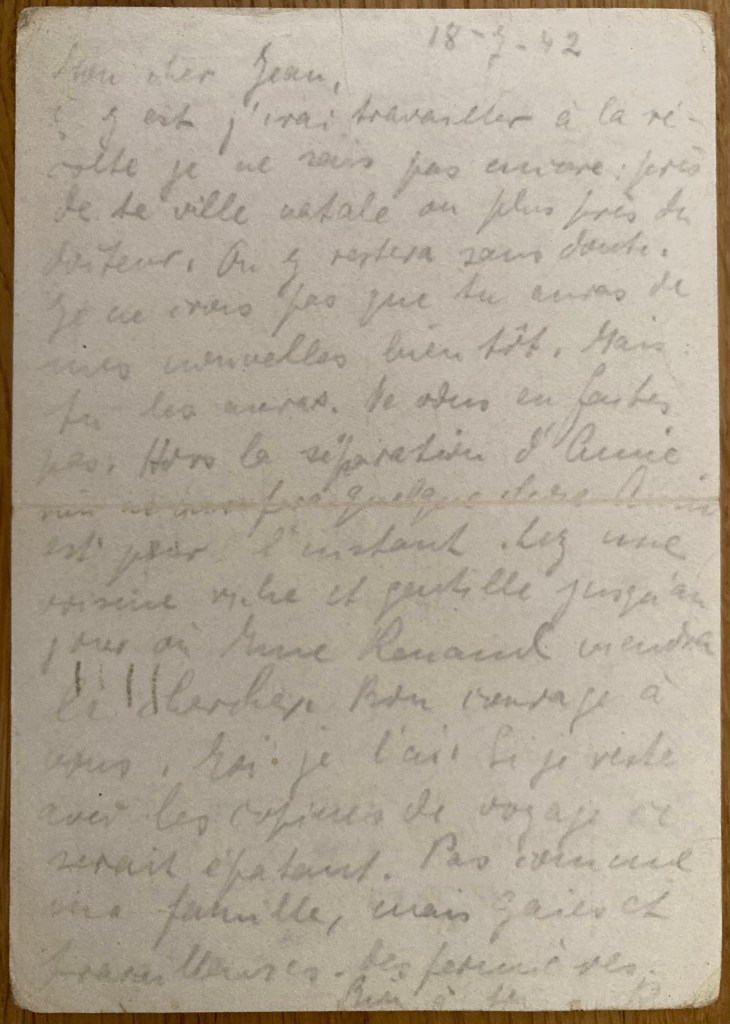 18-9-42
Mon cher Jean,
y est j'irai travailler à la ré-
colte je ne sais pas encore : près
de te ville natale ou plus près du
docteur. On y restera sans doute.
Je ne crois pas que tu auras de
mes nouvelles bientôt. Mais
tu les auras. Ne vous en faites
pas. Hors la séparation d'Annie
rien ne me fera quelque chose Annie
est pour l'instant chez une
voisine riche et gentille jusqu'au
jour où Mme Renaud viendra
la chercher. Bon courage à
vous. Moi je l'ai. Si je reste
avec les copines de voyage ce
serait épatant. Pas comme
ma famille, mais gaies et
travailleuses. des fermières.
Rien à